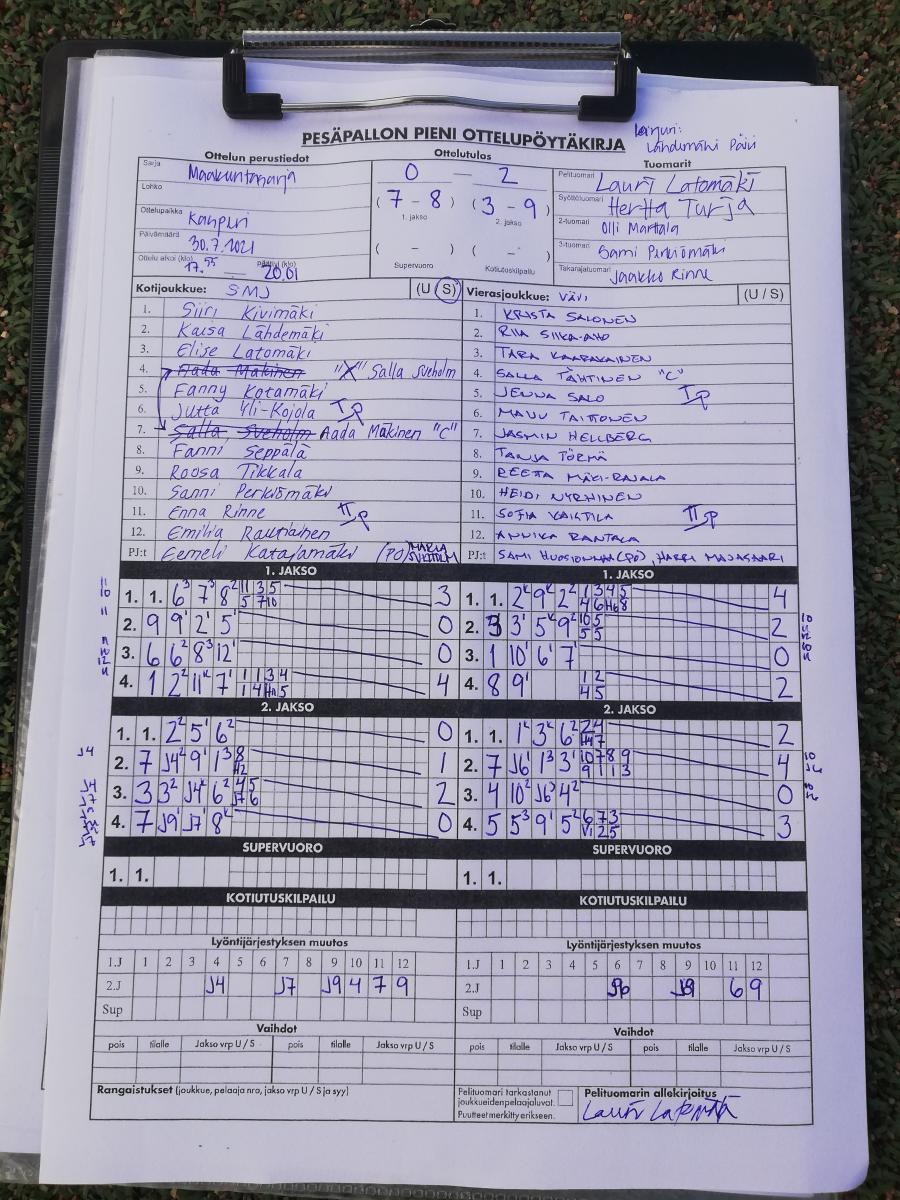 PESÄPALLON PIENI OTTELUPÖYTÄKIRJA
Lähdemäki Päivi
Ottelun perustiedot
Ottelutulos
Tuomarit
Sarja Maakuntasarja
Lohko
Ottelupaikka
Päivämäärä 30.7.2021
Ottelu alkoi (klo) 17.55 — päättyi (klo) 20.01
0 — 2
(7 - 8) (3 - 9)
1. jakso 2. jakso
( - ) ( - )
Supervuoro Kotiutuskilpailu
Pelituomari Lauri Latomäki
Syöttötuomari Hertta Turja
2-tuomari Olli Martala
3-tuomari Sami Perkiömäki
Takarajatuomari Jaakko Rinne
Kotijoukkue: SMJ (U / S)
1. Siiri Kivimäki
2. Kaisa Lähdemäki
3. Elise Latomäki
4. Aada Mäkinen "X" Salla Sveholm
5. Fanny Kotamäki
6. Jutta Yli-Kojola I P
7. Salla Sveholm Aada Mäkinen "C"
8. Fanni Seppälä
9. Roosa Tikkala
10. Sanni Perkiömäki
11. Enna Rinne II P
12. Emilia Rautiainen
PJ:t Eemeli Katajamäki (PO)
Vierasjoukkue: VÄVI (U / S)
1. KRISTA SALONEN
2. RIIA SIIKA-AHO
3. TARA KAARAKAINEN
4. SALLA TÄHTINEN "C"
5. JENNA SALO I P
6. MANU TAITTONEN
7. JASMIN HELLBERG
8. TANJA TÖRMÄ
9. REETTA MÄKI-RAJALA
10. HEIDI NYRHINEN
11. SOFIA II P
12. ANNIKA RANTALA
PJ:t SAMI (PO), HARRI
1. JAKSO
1. 1. 6³ 7³ 8² 3
2. 9 9' 2' 5' 0
3. 6 6² 8³ 12' 0
4. 1 2² 11ᴷ 7' 4
1. JAKSO
1. 1. 2ᴷ 9ᴷ 2² 4
2. 3 3' 5ᴷ 9² 2
3. 1 10' 6' 7' 0
4. 8 9' 2
2. JAKSO
1. 1. 2² 5' 6² 0
2. 7 J4² 9' 1³ 1
3. 3 3² J4ᴷ 6² 2
4. 7 J9' J7' 8ᴷ 0
2. JAKSO
1. 1. 1ᴷ 3ᴷ 6² 2
2. 7 J6' 1³ 3' 4
3. 4 10² J6³ 4² 0
4. 5 5³ 9' 5² 3
SUPERVUORO
1. 1.
SUPERVUORO
1. 1.
KOTIUTUSKILPAILU
KOTIUTUSKILPAILU
Lyöntijärjestyksen muutos
1.J 1 2 3 4 5 6 7 8 9 10 11 12
2.J J4 J7 J9 4 7 9
Sup
Lyöntijärjestyksen muutos
1.J 1 2 3 4 5 6 7 8 9 10 11 12
2.J 6 9
Sup
Vaihdot
pois tilalle Jakso vrp U / S pois tilalle Jakso vrp U / S
Vaihdot
pois tilalle Jakso vrp U / S pois tilalle Jakso vrp U / S
Rangaistukset (joukkue, pelaaja nro, jakso vrp U / S ja syy)
Pelituomari tarkastanut
joukkueidenpelaajaluvat.
Puutteet merkitty erikseen.
Pelituomarin allekirjoitus
Lauri Latomäki